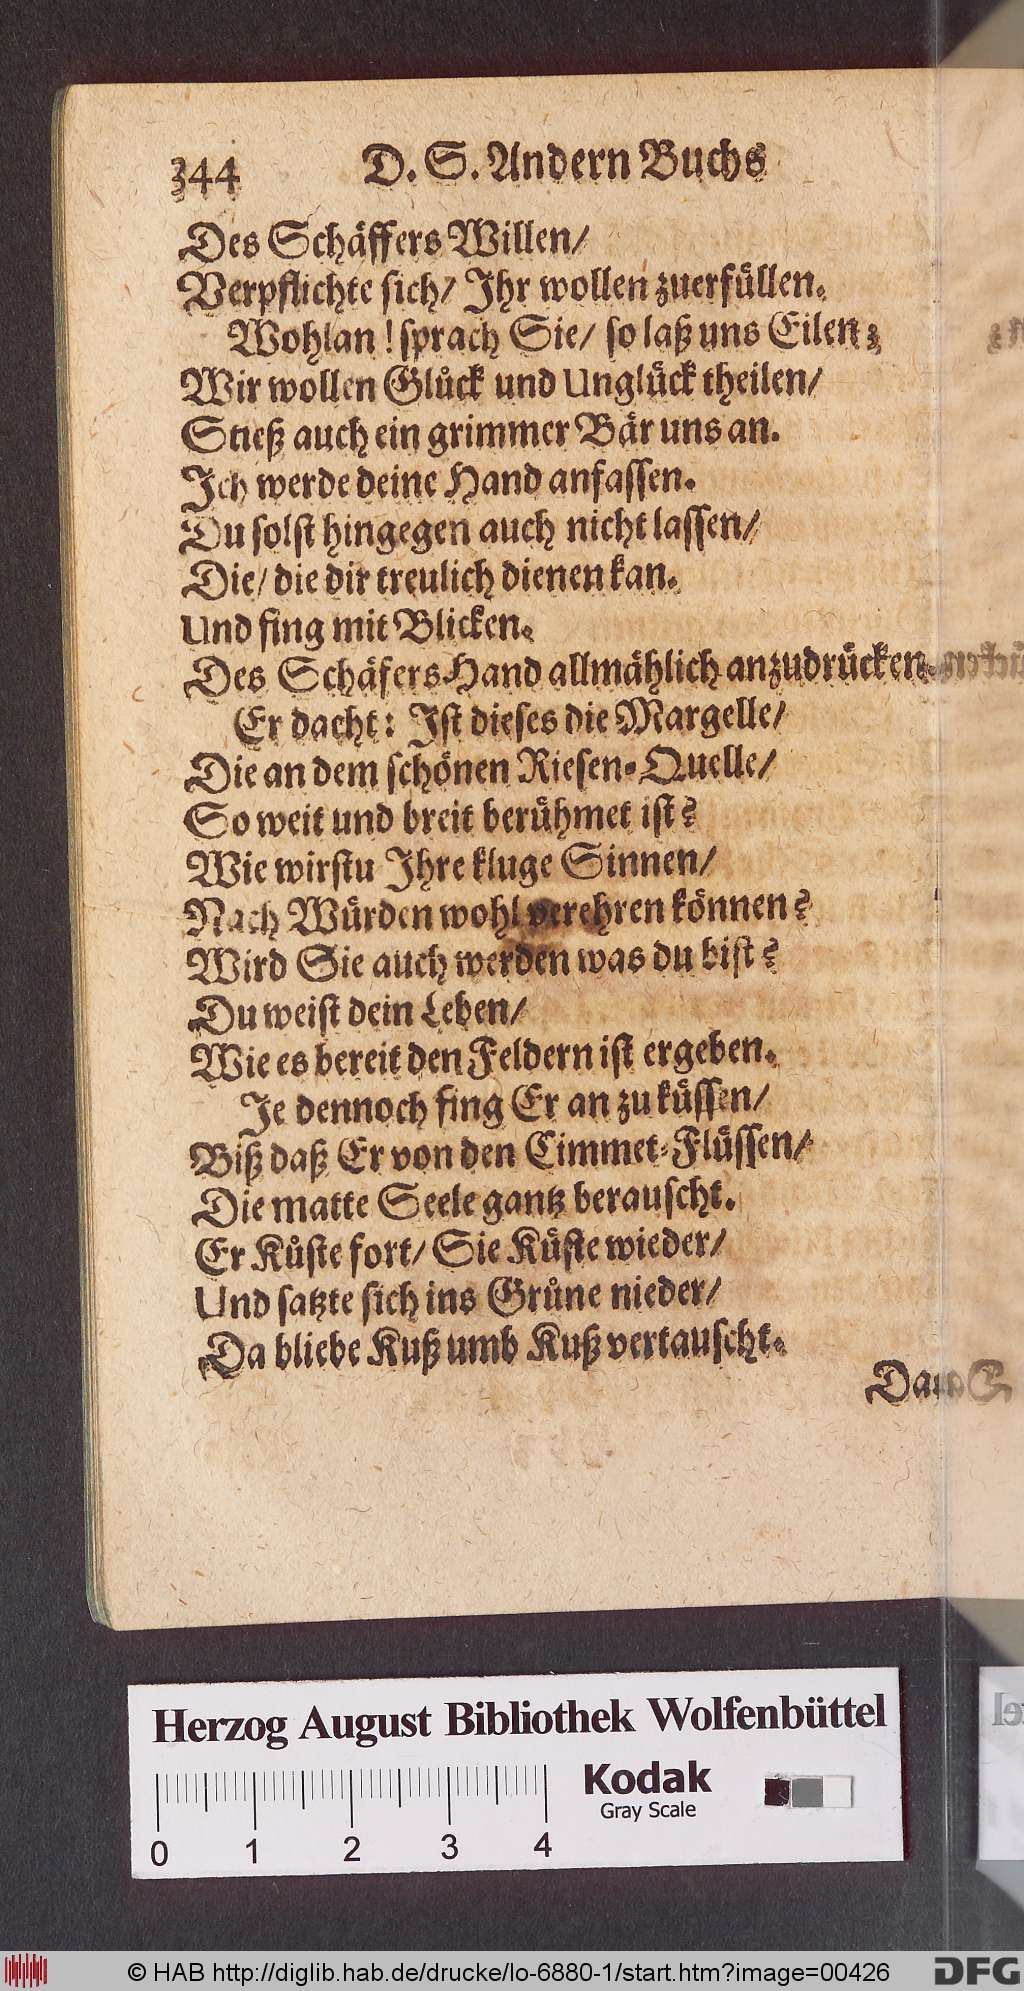 344 D. S. Andern Buchs
Des Schäffers Willen/
Verpflichte sich/ Ihr wollen zuerfüllen.
Wohlan! sprach Sie/ so laß uns Eilen;
Wir wollen Glück und Unglück theilen/
Stieß auch ein grimmer Bär uns an.
Ich werde deine Hand anfassen.
Du solst hingegen auch nicht lassen/
Die/ die dir treulich dienen kan.
Und fing mit Blicken.
Des Schäfers Hand allmählich anzudrücken.
Er dacht: Ist dieses die Margelle/
Die an dem schönen Riesen-Quelle/
So weit und breit berühmet ist?
Wie wirstu Ihre kluge Sinnen/
Nach Würden wohl verehren können?
Wird Sie auch werden was du bist?
Du weist dein Leben/
Wie es bereit den Feldern ist ergeben.
Je dennoch fing Er an zu küssen/
Biß daß Er von den Cimmet-Flüssen/
Die matte Seele gantz berauscht.
Er Küste fort/ Sie Küste wieder/
Und satzte sich ins Grüne nieder/
Da bliebe Kuß umb Kuß vertauscht.
Herzog August Bibliothek Wolfenbüttel
Kodak
Gray Scale
0 1 2 3 4
© HAB http://diglib.hab.de/drucke/lo-6880-1/start.htm?image=00426
DFG